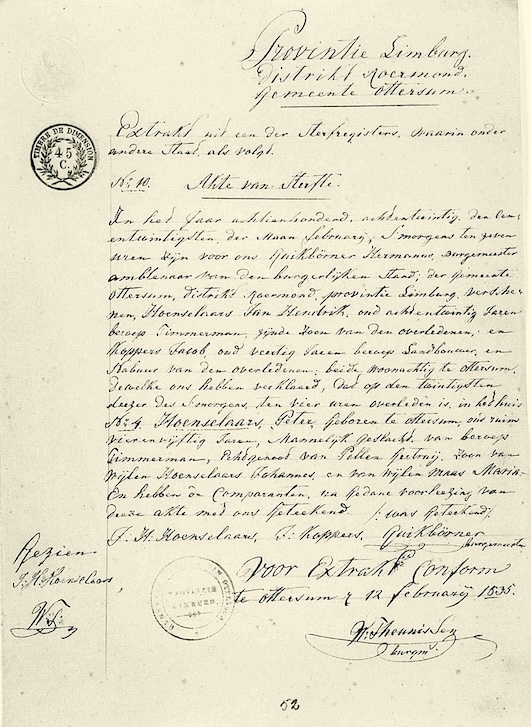 Provintie Limburg.
Distrikt Roermond.
Gemeente Ottersum.
TIMBRE DE DIMENSION
45
C.
Extrakt uit een der sterfregisters, waarin onder
andere Staat, als volgt.
No. 10. Akte van Sterfte.
In het jaar achtienhonderd, achtentwintig, den een
entwintigsten, der maan february, s'morgens ten zeven
uren zijn voor ons Quikbörner Hermanus, Burgemeester
ambtenaar van den burgerlijken Stand, der gemeente
Ottersum, distrikt roermond, provintie Limburg, versche-
nen, Hoenselaars Jan Hendrik, oud achtentwintig Jaren
beroep Timmerman, zijnde zoon van den overledenen; en
Koppers Jacob, oud veertig Jaren beroep Landbouwer, en
Nabuur van den overledenen; beide woonachtig te Ottersum,
dewelke ons hebben verklaard, dat op den twintigsten
deezer des s'morgens, ten vier uren overleden is, in het huis
No. 4 Hoenselaars, Peter, geboren te Ottersum, oud ruim
vierenvijftig Jaren, Mannelijk geslacht, van beroep
Timmerman, Echtgenoot van Pellen Gertruij, zoon van
wijlen Hoenselaars Johannes, en van wijlen Maas Maria
En hebben de Comparanten, na gedane voorleezing van
deeze akte met ons geteekend. /:was geteekend:/
J: H: Hoenselaars, J: Koppers, Quikbörner
burgemeester
Gezien
J: H: Hoenselaars
Voor Extrakt Conform
te Ottersum 12 February 1835.
PROVINCIE
LIMBURG
W: Theunissen
burgm
52